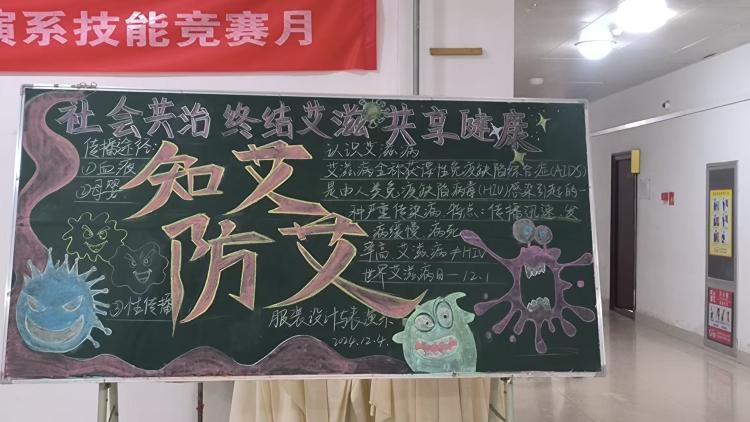 演系技能竞赛月
社会共治 终结艾滋 共享健康
传播途径:
①血液
②母婴
③性传播
知艾
防艾
认识艾滋病
艾滋病全称获得性免疫缺陷综合症(AIDS)
是由人类免疫缺陷病毒(HIV)感染引起的一
种严重传染病.特点:传播迅速、发
病缓慢 病死
率高 艾滋病≠HIV
世界艾滋病日—12.1
服装设计与表演系
2024.12.4.